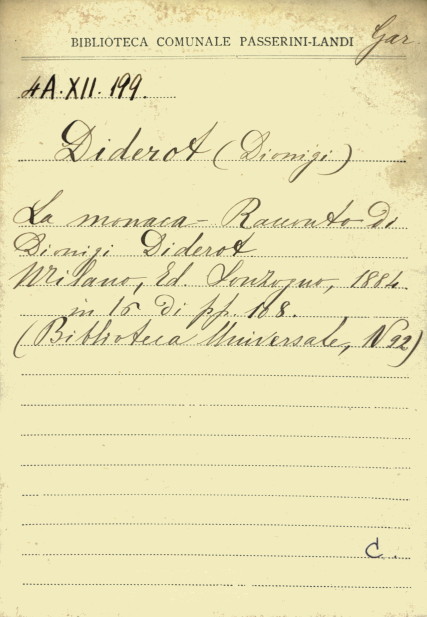 BIBLIOTECA COMUNALE PASSERINI-LANDI Gar.
4A.XII.199.
Diderot (Dionigi)
La monaca - Racconto di
Dionigi Diderot
Milano, Ed. Sonzogno, 1884
in 16 di pp. 108.
(Biblioteca Universale, N 92)
C.